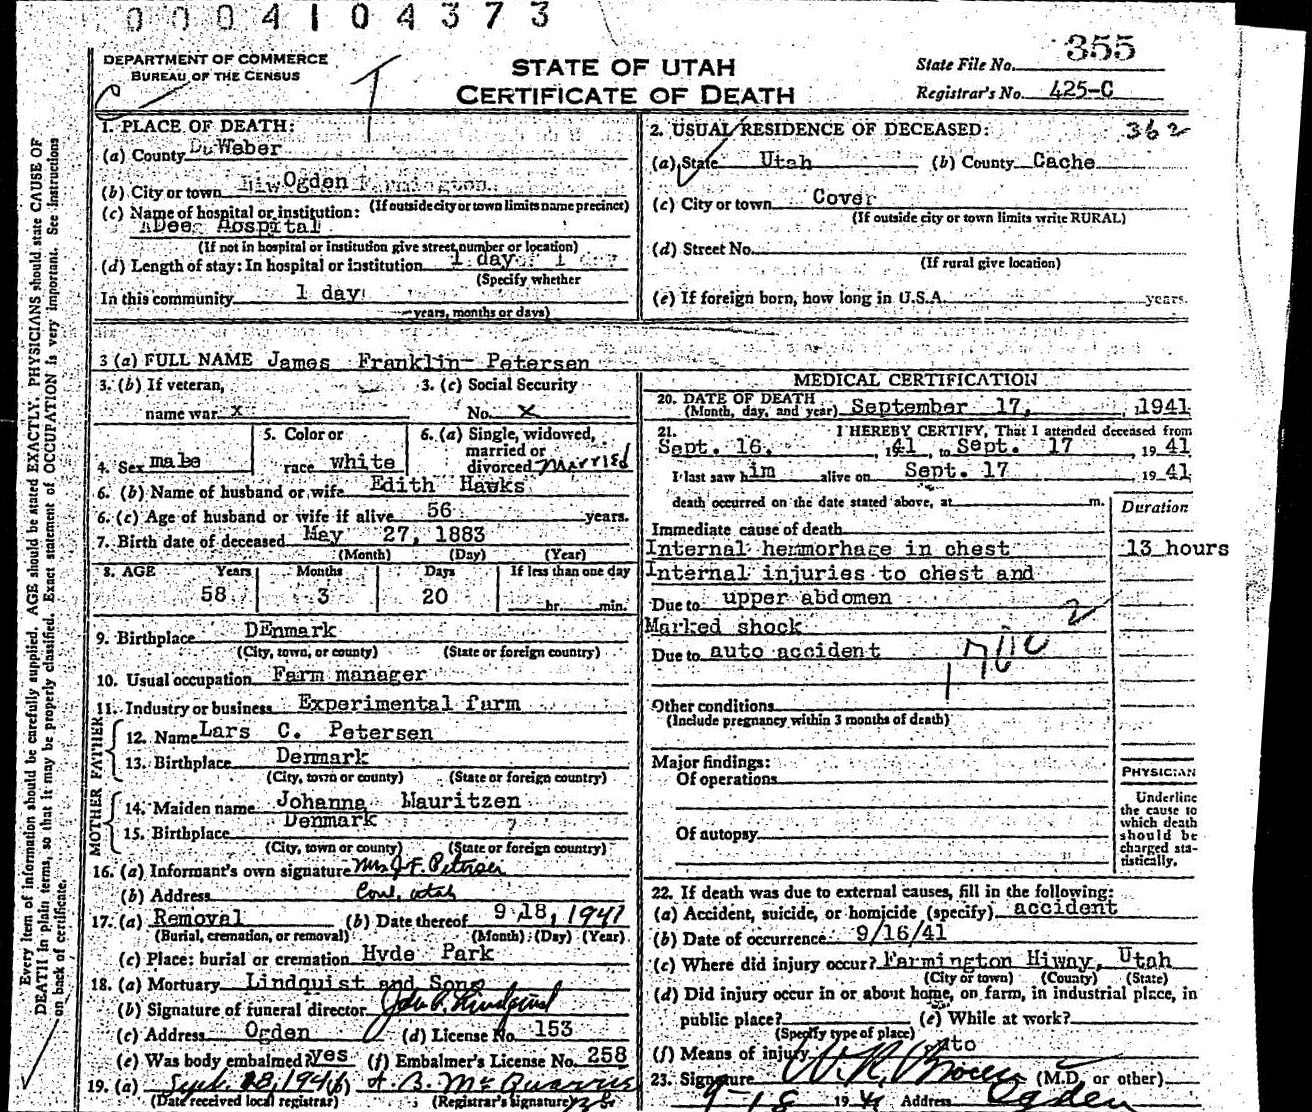 0004104373
DEPARTMENT OF COMMERCE
BUREAU OF THE CENSUS
STATE OF UTAH
CERTIFICATE OF DEATH
State File No. 355
Registrar's No. 425-C
1. PLACE OF DEATH:
(a) County Weber
(b) City or town Ogden
(If outside city or town limits name precinct)
(c) Name of hospital or institution:
Dee Hospital
(If not in hospital or institution give street number or location)
(d) Length of stay: In hospital or institution 1 day
(Specify whether
In this community 1 day
years, months or days)
2. USUAL RESIDENCE OF DECEASED: 362
(a) State Utah (b) County Cache
(c) City or town Cover
(If outside city or town limits write RURAL)
(d) Street No.
(If rural give location)
(e) If foreign born, how long in U.S.A. years.
3 (a) FULL NAME James Franklin Petersen
3. (b) If veteran, name war x
3. (c) Social Security No. x
4. Sex male
5. Color or race white
6. (a) Single, widowed, married or divorced Married
6. (b) Name of husband or wife Edith Hawks
6. (c) Age of husband or wife if alive 56 years.
7. Birth date of deceased May 27, 1883
(Month) (Day) (Year)
8. AGE Years Months Days If less than one day
58 3 20 hr. min.
9. Birthplace DEnmark
(City, town, or county) (State or foreign country)
10. Usual occupation Farm manager
11. Industry or business Experimental farm
FATHER
12. Name Lars C. Petersen
13. Birthplace Denmark
(City, town or county) (State or foreign country)
MOTHER
14. Maiden name Johanna Mauritzen
15. Birthplace Denmark
(City, town or county) (State or foreign country)
16. (a) Informant's own signature Mrs J. F. Petersen
(b) Address Cove, Utah
17. (a) Removal (b) Date thereof 9 18, 1941
(Burial, cremation, or removal) (Month) (Day) (Year)
(c) Place: burial or cremation Hyde Park
18. (a) Mortuary Lindquist and Sons
(b) Signature of funeral director John A. Lindquist
(c) Address Ogden (d) License No. 153
(e) Was body embalmed? yes (f) Embalmer's License No. 258
19. (a) Sept. 18, 1941 (b) A. B. McQuarrie
(Date received local registrar) (Registrar's signature)
MEDICAL CERTIFICATION
20. DATE OF DEATH
(Month, day, and year) September 17, , 1941
21. I HEREBY CERTIFY, That I attended deceased from
Sept. 16. , 1941, to Sept. 17 19 41
I last saw him alive on Sept. 17 19 41
death occurred on the date stated above, at m.
Duration
Immediate cause of death
Internal hemmorhage in chest 13 hours
Internal injuries to chest and
Due to upper abdomen
Marked shock
Due to auto accident
Other conditions
(Include pregnancy within 3 months of death)
Major findings:
Of operations
Of autopsy
PHYSICIAN
Underline
the cause to
which death
should be
charged sta-
tistically.
22. If death was due to external causes, fill in the following:
(a) Accident, suicide, or homicide (specify) accident
(b) Date of occurrence 9/16/41
(c) Where did injury occur? Farmington Hiway, Utah
(City or town) (County) (State)
(d) Did injury occur in or about home, on farm, in industrial place, in
public place? (e) While at work?
(Specify type of place)
(f) Means of injury Auto
23. Signature (M.D. or other)
9-18 19 41 Address Ogden
Every item of information should be carefully supplied. AGE should be stated EXACTLY. PHYSICIANS should state CAUSE OF
DEATH in plain terms, so that it may be properly classified. Exact statement of OCCUPATION is very important. See instructions
on back of certificate.